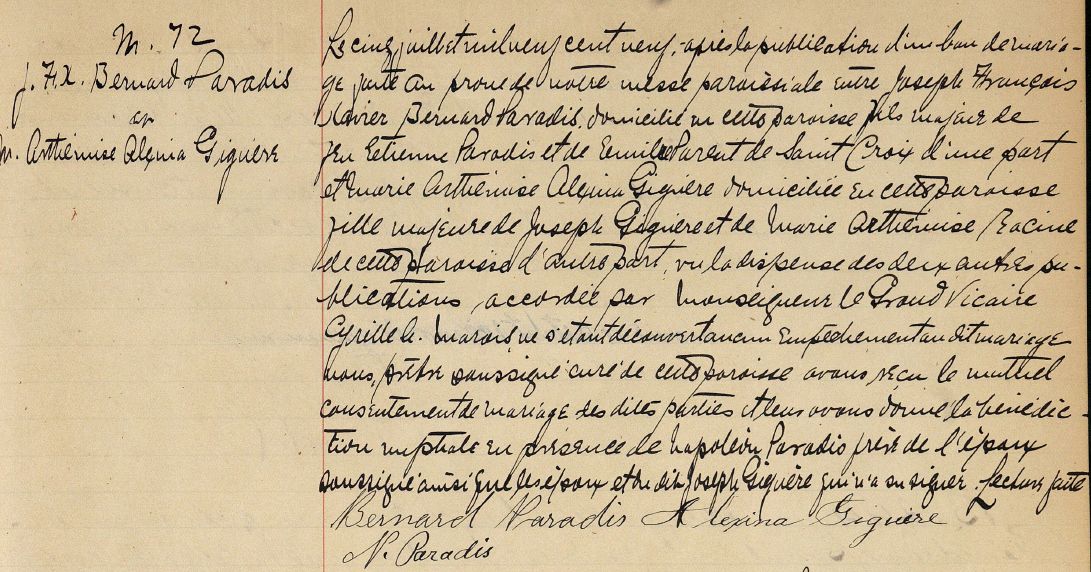 M. 72
J. F.X. Bernard Paradis
et
M. Arthémise Alexina Giguère
Le cinq juillet mil neuf cent neuf, après la publication d'un ban de maria-
ge faite au prone de notre messe paroissiale entre Joseph François
Xavier Bernard Paradis domicilié en cette paroisse fils majeur de
feu Etienne Paradis et de Emilie Parent de Saint Croix d'une part
et Marie Arthémise Alexina Giguère domiciliée en cette paroisse
fille majeure de Joseph Giguère et de Marie Arthémise Racine
de cette paroisse d'autre part, vu la dispense des deux autres pu-
blications accordée par Monseigneur le Grand Vicaire
Cyrille E. Marois, ne s'étant découvert aucun empêchement au dit mariage
nous, prêtre soussigné curé de cette paroisse avons reçu le mutuel
consentement de mariage des dites parties et leur avons donné la bénédic-
tion nuptiale en présence de Napoléon Paradis frère de l'époux
soussigné ainsi que les époux et du dit Joseph Giguère qui n'a su signer. Lecture faite
Bernard Paradis Alexina Giguère
N. Paradis